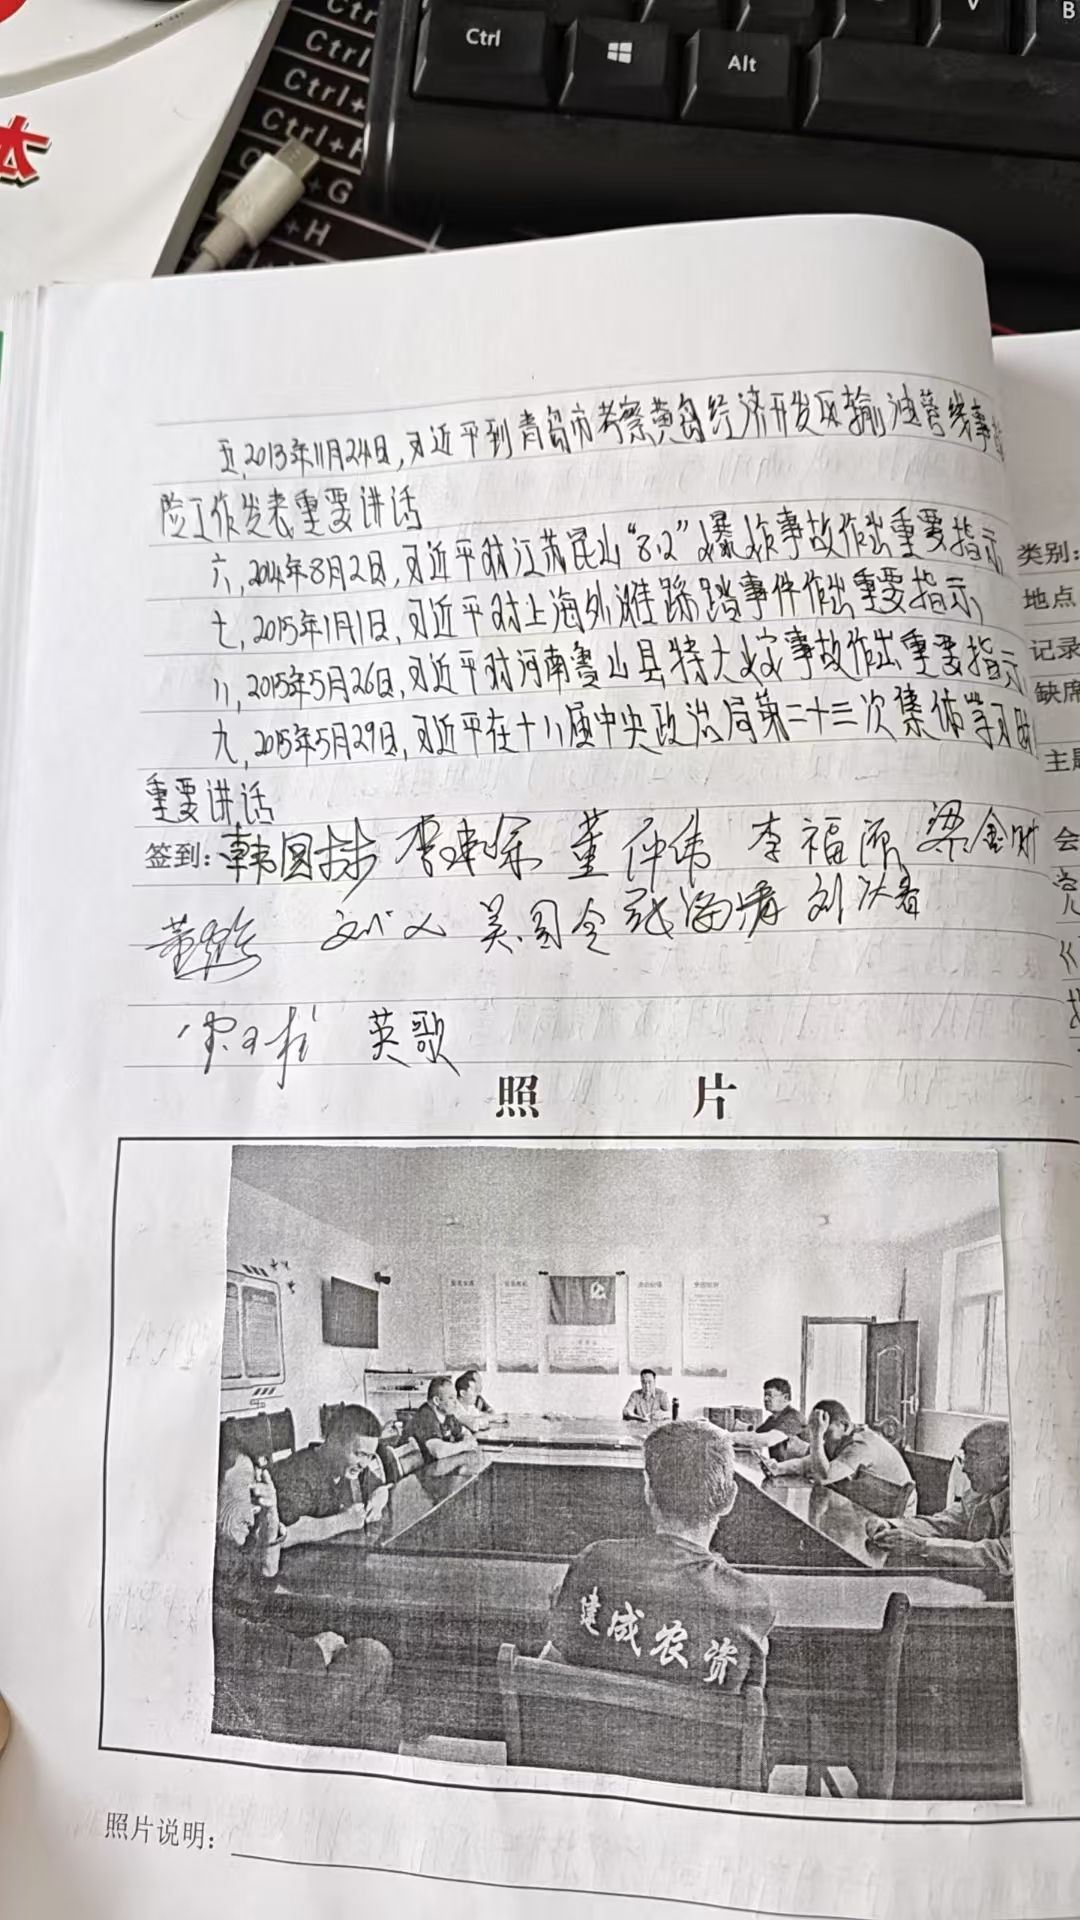 Ctrl
Alt
V
B
Ctrl
Ctrl
Ctrl+
Ctrl+F
+G
+H
本
五,2013年11月24日,习近平到青岛市考察黄岛经济开发区输油管线事故
险工作发表重要讲话
六,2014年8月2日,习近平对江苏昆山“8.2”爆炸事故作出重要指示
七,2015年1月1日,习近平对上海外滩踩踏事件作出重要指示
八,2015年5月26日,习近平对河南鲁山县特大火灾事故作出重要指示
九,2015年5月29日,习近平在十八届中央政治局第二十三次集体学习时
重要讲话
签到: 董仲伟 李福 梁金财
英歌
照 片
建成农资
照片说明:
类别:
地点
记录
缺席
主题
会